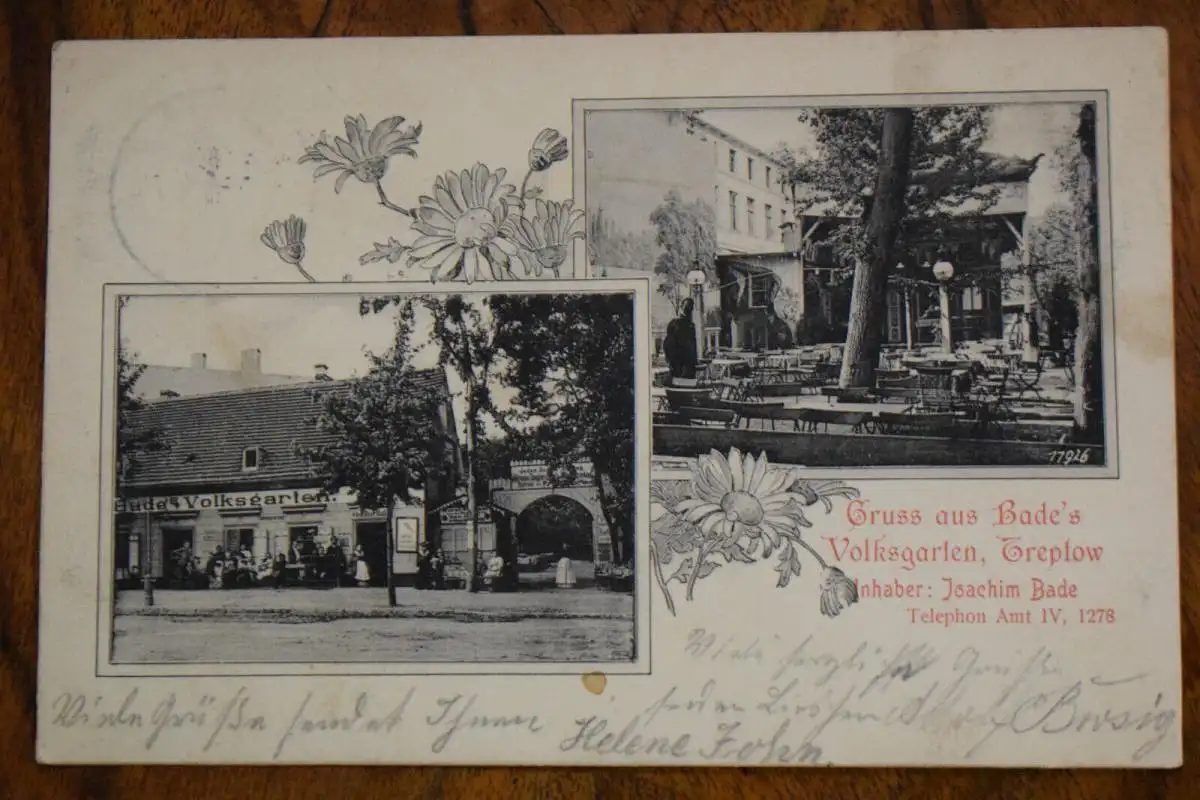 11926
Bade's Volksgarten.
Gruss aus Bade's
Volksgarten, Treptow
Inhaber: Joachim Bade
Telephon Amt IV, 1278
Viele herzliche Grüße
Viele Grüße sendet Ihnen
Helene